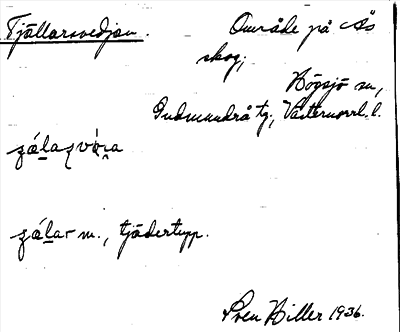 Tjällarsvedjan. Område på Ås
skog,
Högsjö sn,
Gudmundrå tg, Västernorrl. l.
tjädertupp.
Sven Hiller 1936.